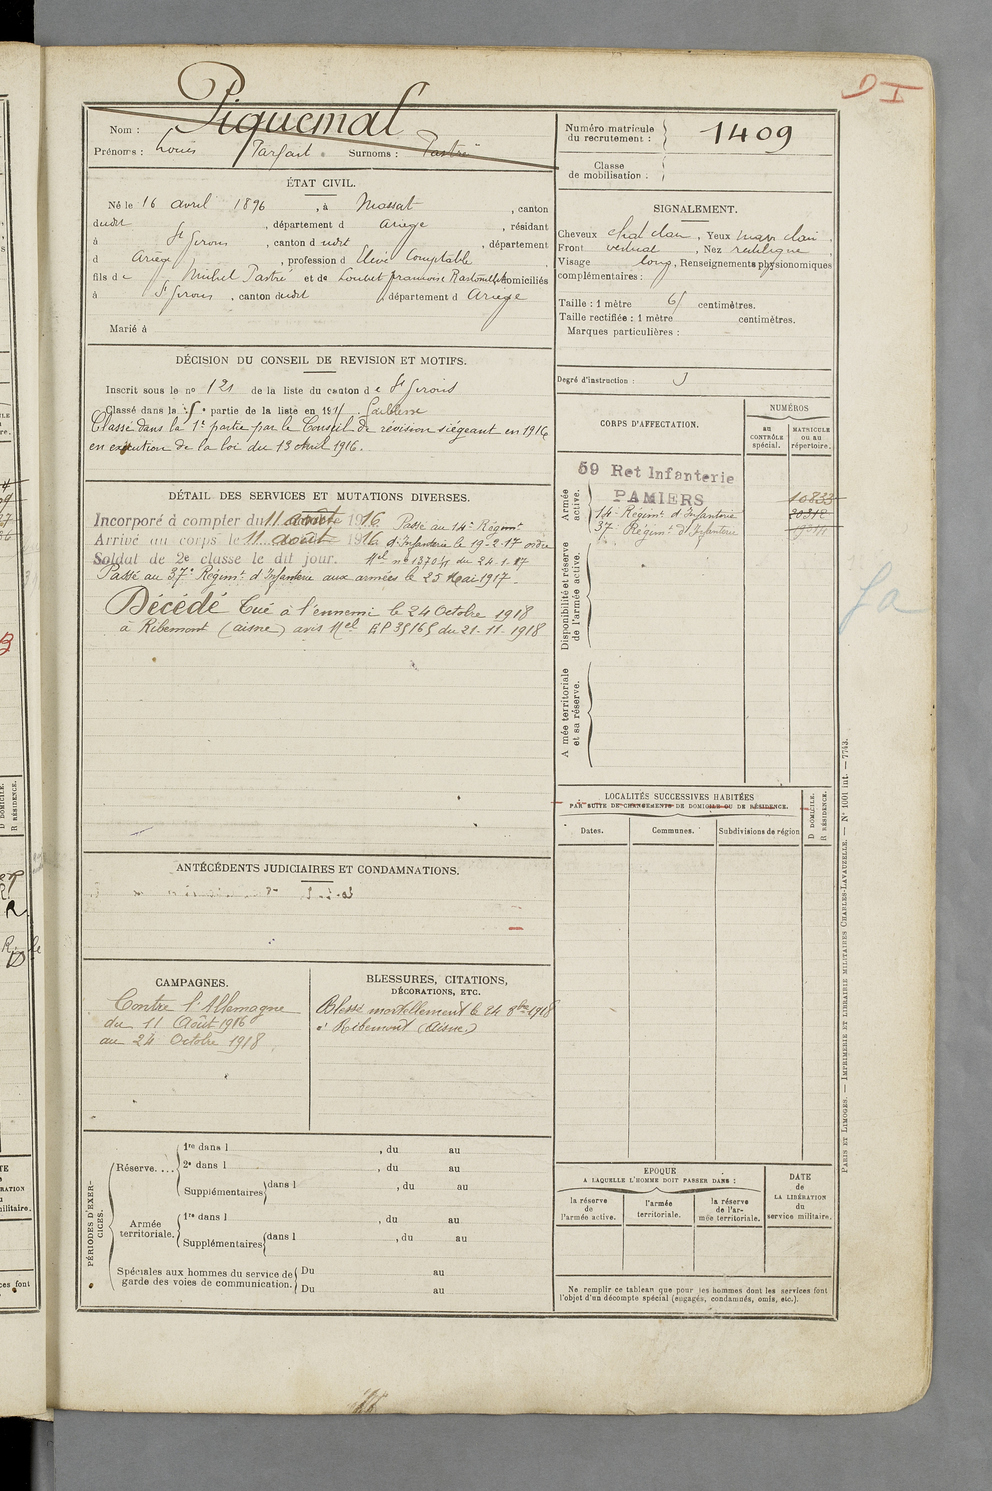 D I
Nom : Piquemal
Prénoms : Louis Parfait. Surnoms : Pastré
Numéro matricule du recrutement : 1409
Classe de mobilisation :
ÉTAT CIVIL.
Né le 16 avril 1896, à Massat, canton
dudit, département d Ariège, résidant
à St Girons, canton d udit, département
d Ariège, profession d Elève Comptable
fils de Michel Pastré et de Loubet françoise domiciliés
à St Girons, canton dudit, département d Ariège
Marié à
SIGNALEMENT.
Cheveux chat clair, Yeux mar clair,
Front vertical, Nez rectiligne,
Visage long, Renseignements physionomiques
complémentaires :
Taille : 1 mètre 65 centimètres.
Taille rectifiée : 1 mètre centimètres.
Marques particulières :
Degré d'instruction : 3
DÉCISION DU CONSEIL DE REVISION ET MOTIFS.
Inscrit sous le no 121 de la liste du canton de St Girons
Classé dans la 5e partie de la liste en 1915. faiblesse
Classé dans la 1e partie par le Conseil de révision siégeant en 1916
en exécution de la loi du 13 Avril 1916.
CORPS D'AFFECTATION.
NUMÉROS
AU CONTRÔLE spécial.
MATRICULE ou au répertoire.
Armée active.
59 Ret Infanterie
PAMIERS
10833
14e Régimt d'Infanterie
37e Régimt d'Infanterie
Disponibilité et réserve de l'armée active.
Armée territoriale et sa réserve.
fa
DÉTAIL DES SERVICES ET MUTATIONS DIVERSES.
Incorporé à compter du 11 août 1916. Passé au 14e Régimt
Arrivé au corps le 11 août 1916 d'Infanterie le 19-2-17 ordre
Soldat de 2e classe le dit jour. Mel no 13704 du 24-1-17
Passé au 37e Régimt d'Infanterie aux armées le 25 Mai 1917.
Décédé Tué à l'ennemi le 24 Octobre 1918
à Ribemont (aisne) avis Mel EP 35165 du 21-11-1918
LOCALITÉS SUCCESSIVES HABITÉES
PAR SUITE DE CHANGEMENTS DE DOMICILE OU DE RÉSIDENCE.
Dates.
Communes.
Subdivisions de région
D DOMICILE.
R RÉSIDENCE.
ANTÉCÉDENTS JUDICIAIRES ET CONDAMNATIONS.
CAMPAGNES.
Contre l'Allemagne
du 11 Août 1916
au 24 Octobre 1918
BLESSURES, CITATIONS,
DÉCORATIONS, ETC.
Blessé mortellement le 24 8bre 1918
à Ribemont (Aisne)
PÉRIODES D'EXERCICES.
Réserve....
1re dans l , du au
2e dans l , du au
Supplémentaires dans l , du au
Armée territoriale.
1re dans l , du au
Supplémentaires dans l , du au
Spéciales aux hommes du service de garde des voies de communication.
Du au
Du au
EPOQUE
A LAQUELLE L'HOMME DOIT PASSER DANS :
la réserve de l'armée active.
l'armée territoriale.
la réserve de l'armée territoriale.
DATE de LA LIBÉRATION du service militaire.
Ne remplir ce tableau que pour les hommes dont les services font
l'objet d'un décompte spécial (engagés, condamnés, omis, etc.).
PARIS ET LIMOGES. — IMPRIMERIE ET LIBRAIRIE MILITAIRES CHARLES-LAVAUZELLE. — No 1001 int. — 7743.